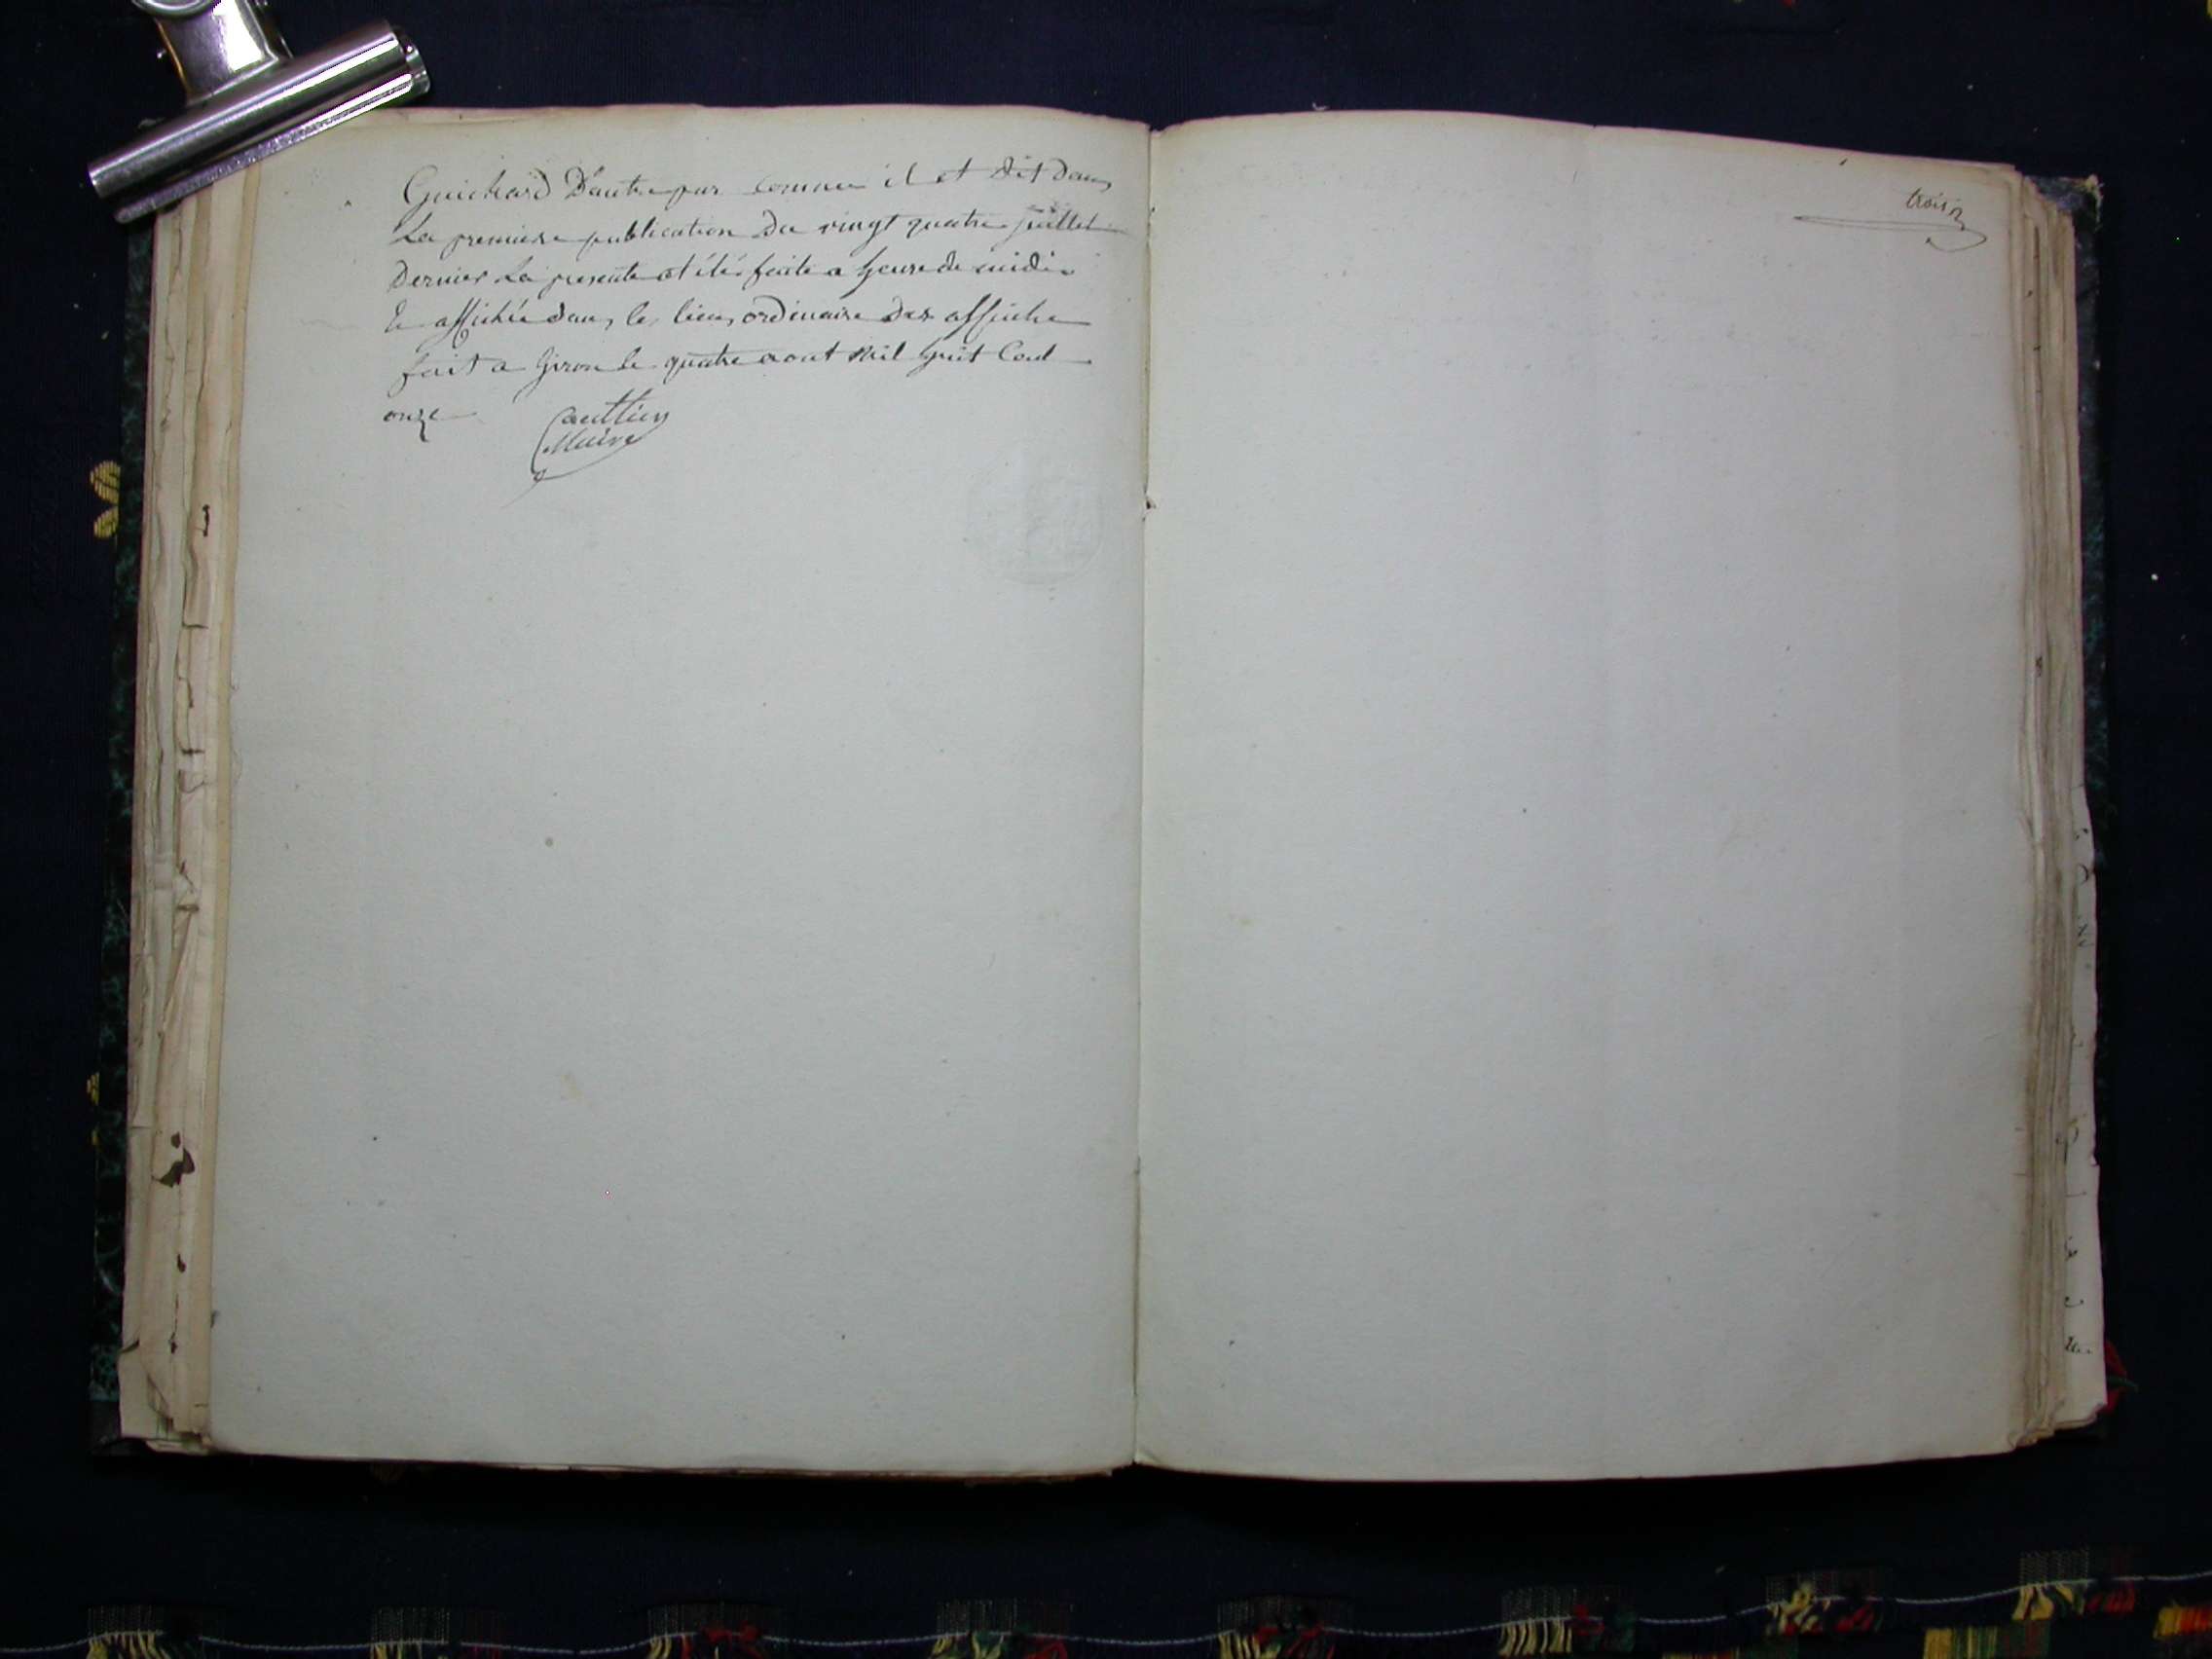 Guichard D'autre par comme il et dit dans
La premiere publication Du vingt quatre juillet
Dernier La presente at été faite a heure de midi
Et affichée dans le lieu ordinaire Des affiche
fait a Giron le quatre aout Mil huit Cent
onze
Gauthier
Maire
trois